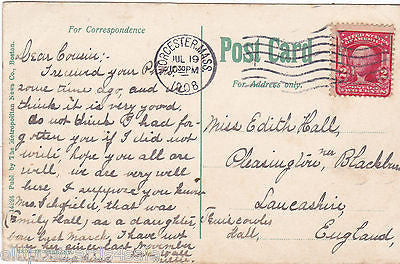 For Correspondence
Post Card
For Address only.
WORCESTER, MASS.
JUL 19
10 30 PM
1908
2 2
44266 Publ. by The Metropolitan News Co., Boston.
Dear Cousin:-
I received your P.
some time ago, and
think it is very good.
do not think I had for-
gotten you if I did not
write, hope you all are
well, we are very well
here. I suppose you know
Mrs. Schofield, that was
Emily Hall, as a daughter,
born last March, I have not
seen her since last November
Miss Edith Hall,
Pleasington, nr Blackburn
Lancashire,
Hall,
England,